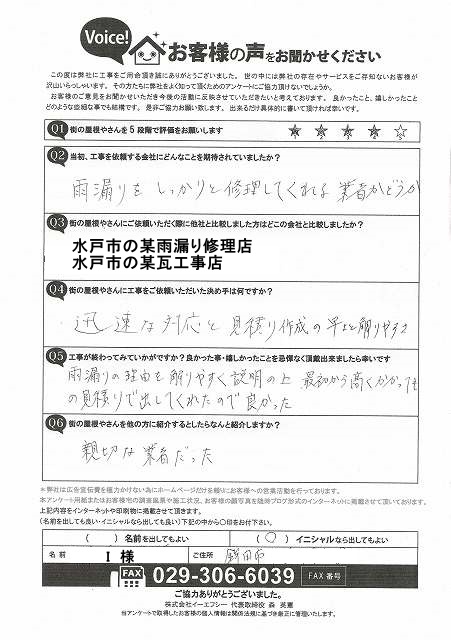 Voice!
お客様の声をお聞かせください
この度は弊社に工事をご用命頂き誠にありがとうございました。世の中には弊社の存在やサービスをご存知ないお客様が
沢山いらっしゃいます。その方たちに弊社をよく知って頂くためのアンケートにご協力頂けないでしょうか。
お客様のご意見をお聞かせいただき今後の活動に反映させていただきたいと考えております。良かったこと、嬉しかったこと
どのような些細な事でも結構です。是非ご協力お願い致します。出来るだけ具体的に書いて頂ければ幸いです。
Q1 街の屋根やさんを5段階で評価をお願いします ★ ★ ★ ★ ☆
Q2 当初、工事を依頼する会社にどんなことを期待されていましたか?
雨漏りをしっかりと修理してくれる業者かどうか
Q3 街の屋根やさんにご依頼いただく際に他社と比較しました方はどこの会社と比較しましたか?
水戸市の某雨漏り修理店
水戸市の某瓦工事店
Q4 街の屋根やさんに工事をご依頼いただいた決め手は何ですか?
・迅速な対応と見積り作成の早さと解りやすさ
Q5 工事が終わってみていかがですか?良かった事・嬉しかったことを忌憚なく頂戴出来ましたら幸いです
雨漏りの理由を解りやすく説明の上 最初から高くかかっても
の見積りで出してくれたので良かった
Q6 街の屋根やさんを他の方に紹介するとしたらなんと紹介しますか?
親切な業者だった
*弊社は広告宣伝費を極力かけない為にホームページだけを頼りにお客様への営業活動を行っております。
本アンケート用紙またはお客様宅の調査風景や施工状況、お客様の顔写真を随時ブログ形式のインターネットに掲載させて頂いております。
上記内容をインターネットや印刷物に掲載させて頂きます。
(名前を出しても良い・イニシャルなら出しても良い)下記の中から〇印をお付下さい。
( )名前を出してもよい (〇)イニシャルなら出してもよい
名前 I 様 ご住所 鉾田市
FAX 029-306-6039 FAX番号
ご協力ありがとうございました。
株式会社イーエフシー 代表取締役 森 英憲
当アンケートで取得したお客様の個人情報は関係法規に基づき厳正に管理いたします。